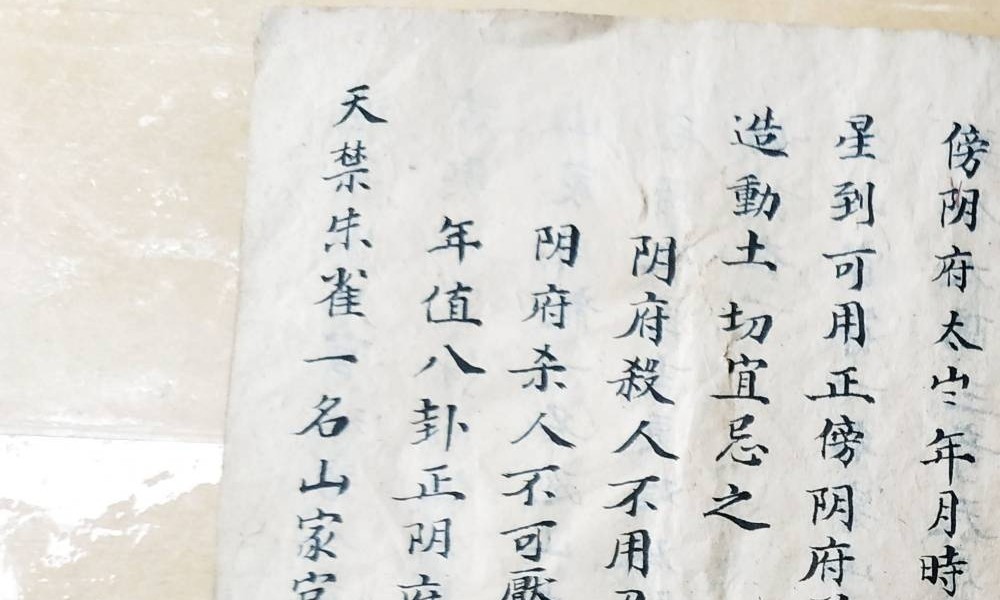 傍阴府太岁年月時
星到可用正傍阴府
造動土切宜忌之
阴府殺人不用
阴府杀人不可壓
年值八卦正阴府
天禁朱雀一名山家官